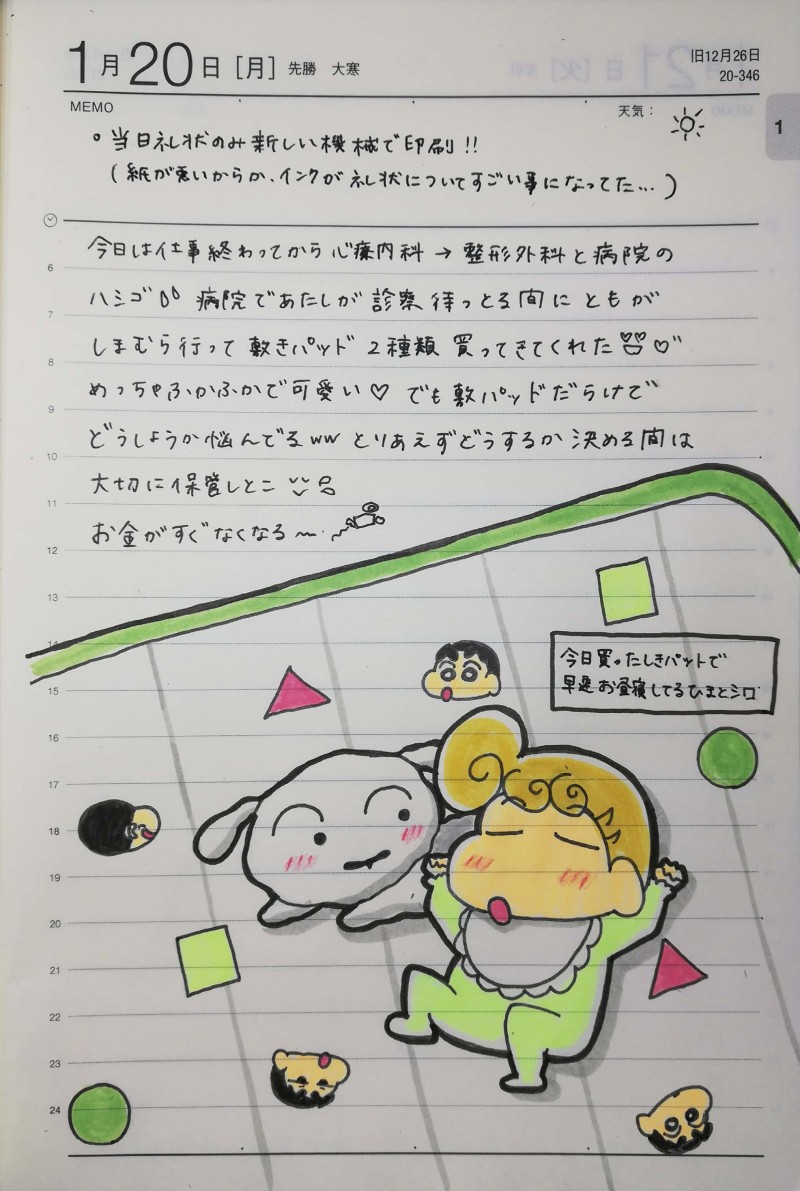 1月20日[月] 先勝 大寒
旧12月26日
20-346
MEMO
天気：
1
。当日礼状のみ新しい機械で印刷!!
(紙が悪いからか、インクが礼状についてすごい事になってた…)
今日は仕事終わってから心療内科→整形外科と病院の
ハシゴ 病院であたしが診察待っとる間にともが
しまむら行って敷きパッド2種類買ってきてくれた
めっちゃふかふかで可愛い♡ でも敷パッドだらけで
どうしようか悩んでるww とりあえずどうするか決める間は
大切に保管しとこ
お金がすぐなくなる〜
今日買ったしきパットで
早速お昼寝してるひまとシロ
6
7
8
9
10
11
12
13
14
15
16
17
18
19
20
21
22
23
24